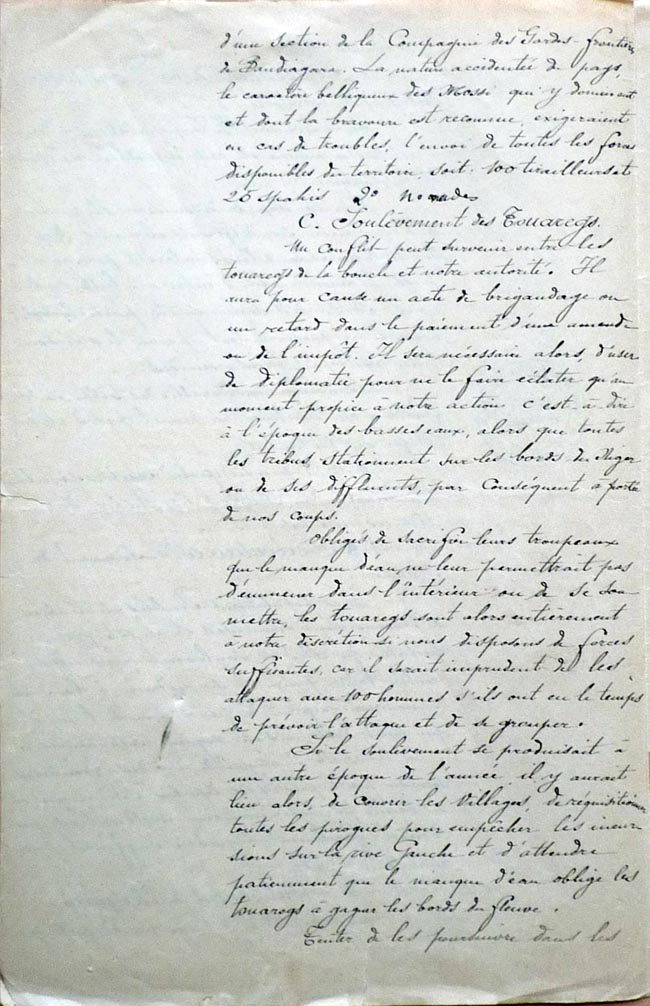 d'une section de la Compagnie des Gardes-frontières
de Bandiagara. La nature accidentée du pays,
le caractère belliqueux des Mossi qui y dominent
et dont la bravoure est reconnue, exigeraient
en cas de troubles, l'envoi de toutes les forces
disponibles du territoire, soit: 100 tirailleurs et
25 spahis
C. Soulèvement des Touaregs.
Un conflit peut survenir entre les
touaregs de la boucle et notre autorité. Il
aura pour cause un acte de brigandage ou
un retard dans le paiement d'une amende
ou de l'impôt. Il sera nécessaire alors, d'user
de diplomatie pour ne le faire éclater qu'au
moment propice à notre action c'est à dire
à l'époque des basses eaux, alors que toutes
les tribus stationnent sur les bords du Niger
ou de ses diffluents, par conséquent à portée
de nos coups.
Obligés de sacrifier leurs troupeaux
que le manque d'eau ne leur permettrait pas
d'emmener dans l'intérieur ou de se sou
mettre, les touaregs sont alors entièrement
à notre discrétion si nous disposons de forces
suffisantes, car il serait imprudent de les
attaquer avec 100 hommes s'ils ont eu le temps
de prévoir l'attaque et de se grouper.
Si le soulèvement se produisait à
une autre époque de l'année, il y aurait
lieu alors, de couvrir les villages, de réquisitionner
toutes les pirogues pour empêcher les incur
sions sur la rive Gauche et d'attendre
patiemment que le manque d'eau oblige les
touaregs à gagner les bords du fleuve.
Tenter de les poursuivre dans les